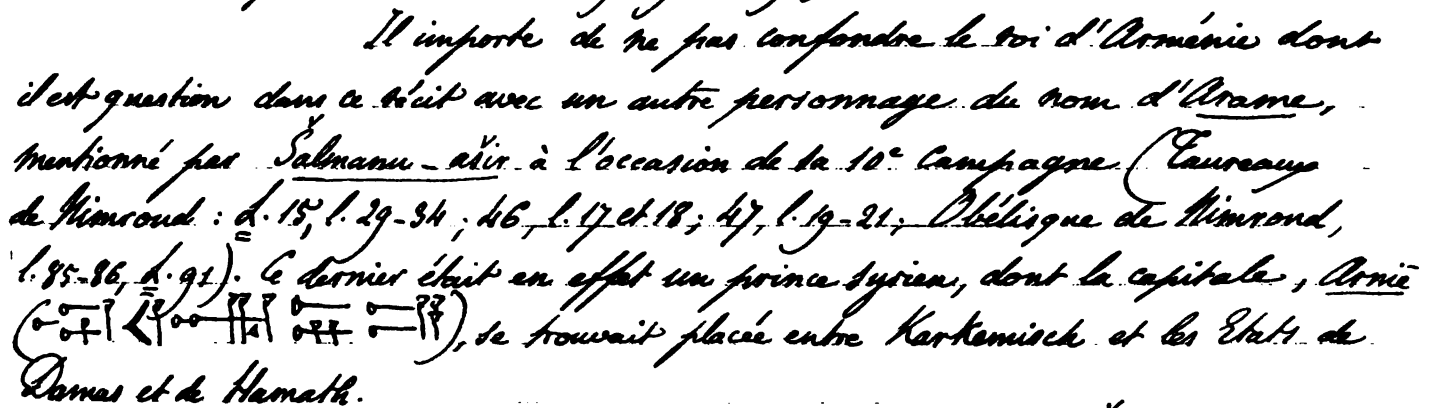 Il importe de ne pas confondre le roi d'Arménie dont
il est question dans ce récit avec un autre personnage du nom d'Arame,
mentionné par Šalmanu-ašir à l'occasion de sa 10e Campagne (Taureaux
de Nimroud : L. 15, l. 29-34 ; 46, l. 17 et 18 ; 47, l. 19-21 ; Obélisque de Nimroud,
l. 85-86, L. 91). Ce dernier était en effet un prince syrien, dont la capitale, Arnië
( ), se trouvait placée entre Karkemisch et les Etats de
Damas et de Hamath.